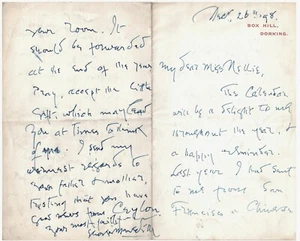 26th 98.
BOX HILL,
DORKING.
My dear Miss
The Calendar
will be a delight to me
throughout the year, &
a happy reminder.
Last year I had sent
to me from San
Francisco a Chinese
your room. It
should be forwarded
at the end of the year
Pray, accept the little
gift, which may lead
you at times to think
of me. I send my
warmest regards to
your father & mother,
trusting that you have
good news from Ceylon.
Your most faithful
George Meredith